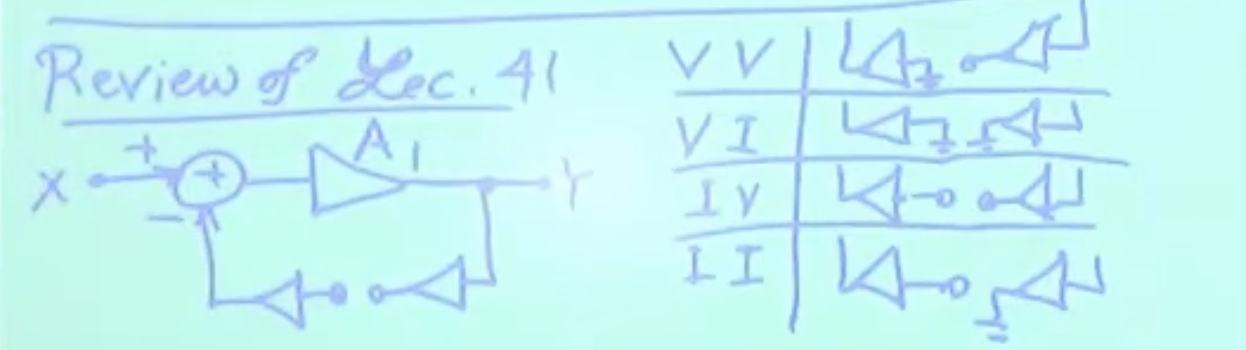 Review of Lec. 41
X + + A1 Y
−
V V
V I
I V
I I